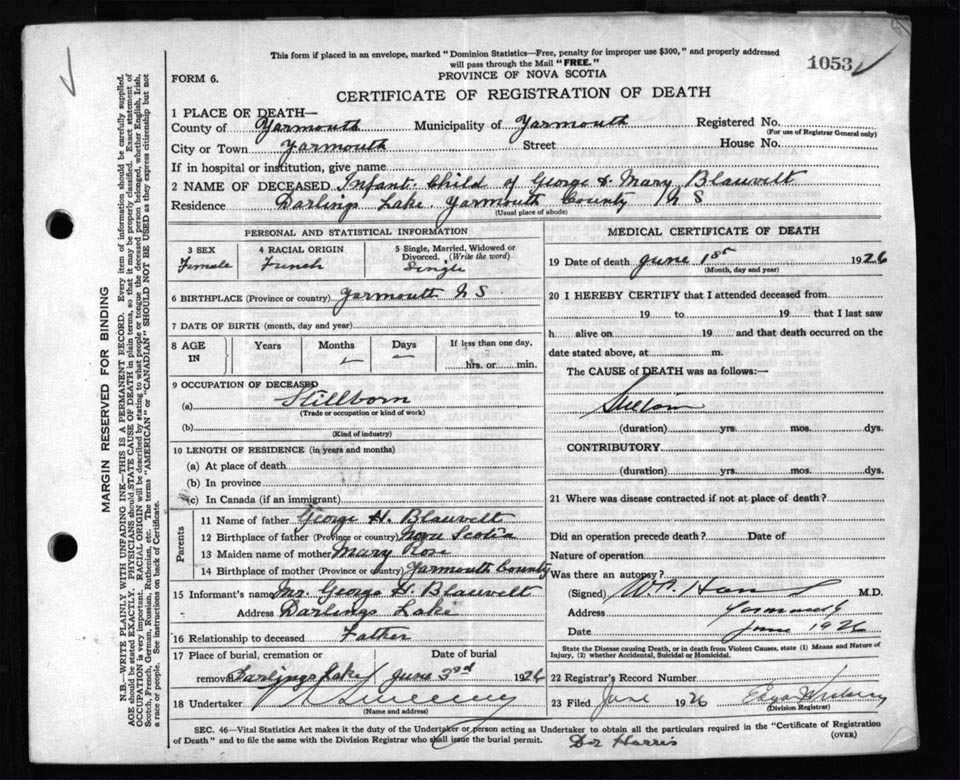 This form if placed in an envelope, marked "Dominion Statistics—Free, penalty for improper use $300," and properly addressed
will pass through the Mail "FREE."
1053
FORM 6.
PROVINCE OF NOVA SCOTIA
CERTIFICATE OF REGISTRATION OF DEATH
1 PLACE OF DEATH—
County of Yarmouth Municipality of Yarmouth Registered No.
(For use of Registrar General only)
City or Town Yarmouth Street House No.
If in hospital or institution, give name
2 NAME OF DECEASED Infant Child of George & Mary Blauvelt
Residence Darlings Lake Yarmouth County N S
(Usual place of abode)
PERSONAL AND STATISTICAL INFORMATION
3 SEX 4 RACIAL ORIGIN 5 Single, Married, Widowed or
Divorced. (Write the word)
Female French Single
6 BIRTHPLACE (Province or country) Yarmouth N S
7 DATE OF BIRTH (month, day and year)
8 AGE IN Years Months Days If less than one day,
hrs. or min.
9 OCCUPATION OF DECEASED
(a) Stillborn
(Trade or occupation or kind of work)
(b)
(Kind of industry)
10 LENGTH OF RESIDENCE (in years and months)
(a) At place of death
(b) In province
(c) In Canada (if an immigrant)
Parents
11 Name of father George H. Blauvelt
12 Birthplace of father (Province or country) Nova Scotia
13 Maiden name of mother Mary Rose
14 Birthplace of mother (Province or country) Yarmouth County
15 Informant's name Mr. George H. Blauvelt
Address Darlings Lake
16 Relationship to deceased Father
17 Place of burial, cremation or Date of burial
removal Darlings Lake June 3rd 1926
18 Undertaker Sweeney
(Name and address)
MEDICAL CERTIFICATE OF DEATH
19 Date of death June 1st 1926
(Month, day and year)
20 I HEREBY CERTIFY that I attended deceased from
19 to 19 that I last saw
h alive on 19 and that death occurred on
date stated above, at m.
The CAUSE of DEATH was as follows:—
Stillborn
(duration) yrs. mos. dys.
CONTRIBUTORY
(duration) yrs. mos. dys.
21 Where was disease contracted if not at place of death?
Did an operation precede death? Date of
Nature of operation
Was there an autopsy?
(Signed) M.D.
Address Yarmouth
Date June 1926
State the Disease causing Death, or in death from Violent Causes, state (1) Means and Nature of
Injury, (2) whether Accidental, Suicidal or Homicidal.
22 Registrar's Record Number
23 Filed June 1926
(Division Registrar)
SEC. 46—Vital Statistics Act makes it the duty of the Undertaker or person acting as Undertaker to obtain all the particulars required in the "Certificate of Registration
of Death" and to file the same with the Division Registrar who shall issue the burial permit.
(OVER)
Dr Harris
MARGIN RESERVED FOR BINDING
N.B.—WRITE PLAINLY WITH UNFADING INK—THIS IS A PERMANENT RECORD. Every item of information should be carefully supplied.
AGE should be stated EXACTLY. PHYSICIANS should STATE CAUSE OF DEATH in plain terms, so that it may be properly classified. Exact statement of
OCCUPATION is very important. RACIAL ORIGIN will be described by stating to what people or tongue the deceased person belonged, whether English, Irish,
Scotch, French, German, Russian, Ruthenian, etc. The terms "AMERICAN" or "CANADIAN" SHOULD NOT BE USED as they express citizenship but not
a race or people. See instructions on back of Certificate.